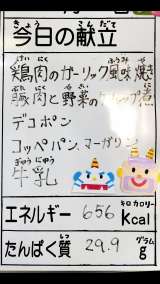 今日の献立
きょう こんだて
鶏肉のガーリック風味焼
けい にく ふうみ やき
豚肉と野菜のケチャップ煮
デコポン
コッペパン、マーガリン
ぎゅうにゅう
牛乳
エネルギー 656 キロカロリー Kcal
たんぱく質 29.9 グラム g